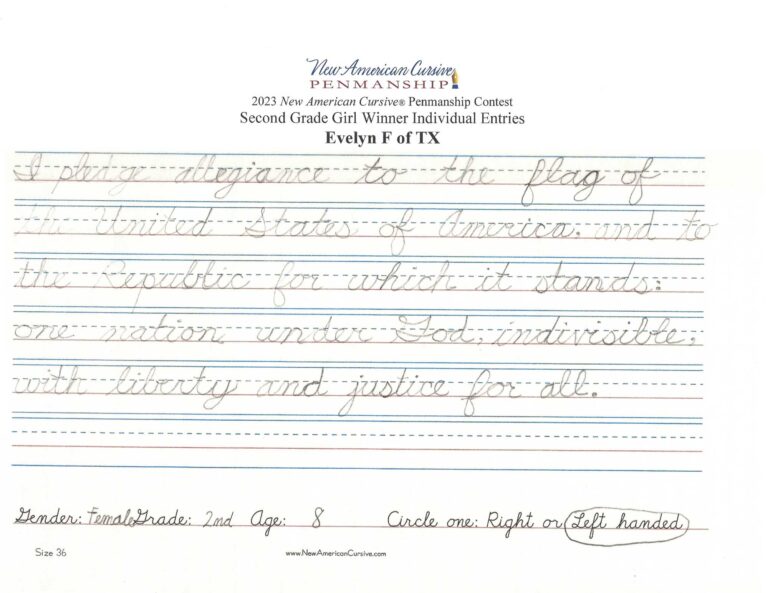 New American Cursive
PENMANSHIP
2023 New American Cursive® Penmanship Contest
Second Grade Girl Winner Individual Entries
Evelyn F of TX
I pledge allegiance to the flag of
the United States of America. and to
the Republic for which it stands:
one nation under God, indivisible,
with liberty and justice for all.
Gender: Female Grade: 2nd Age: 8 Circle one: Right or Left handed
Size 36 www.NewAmericanCursive.com